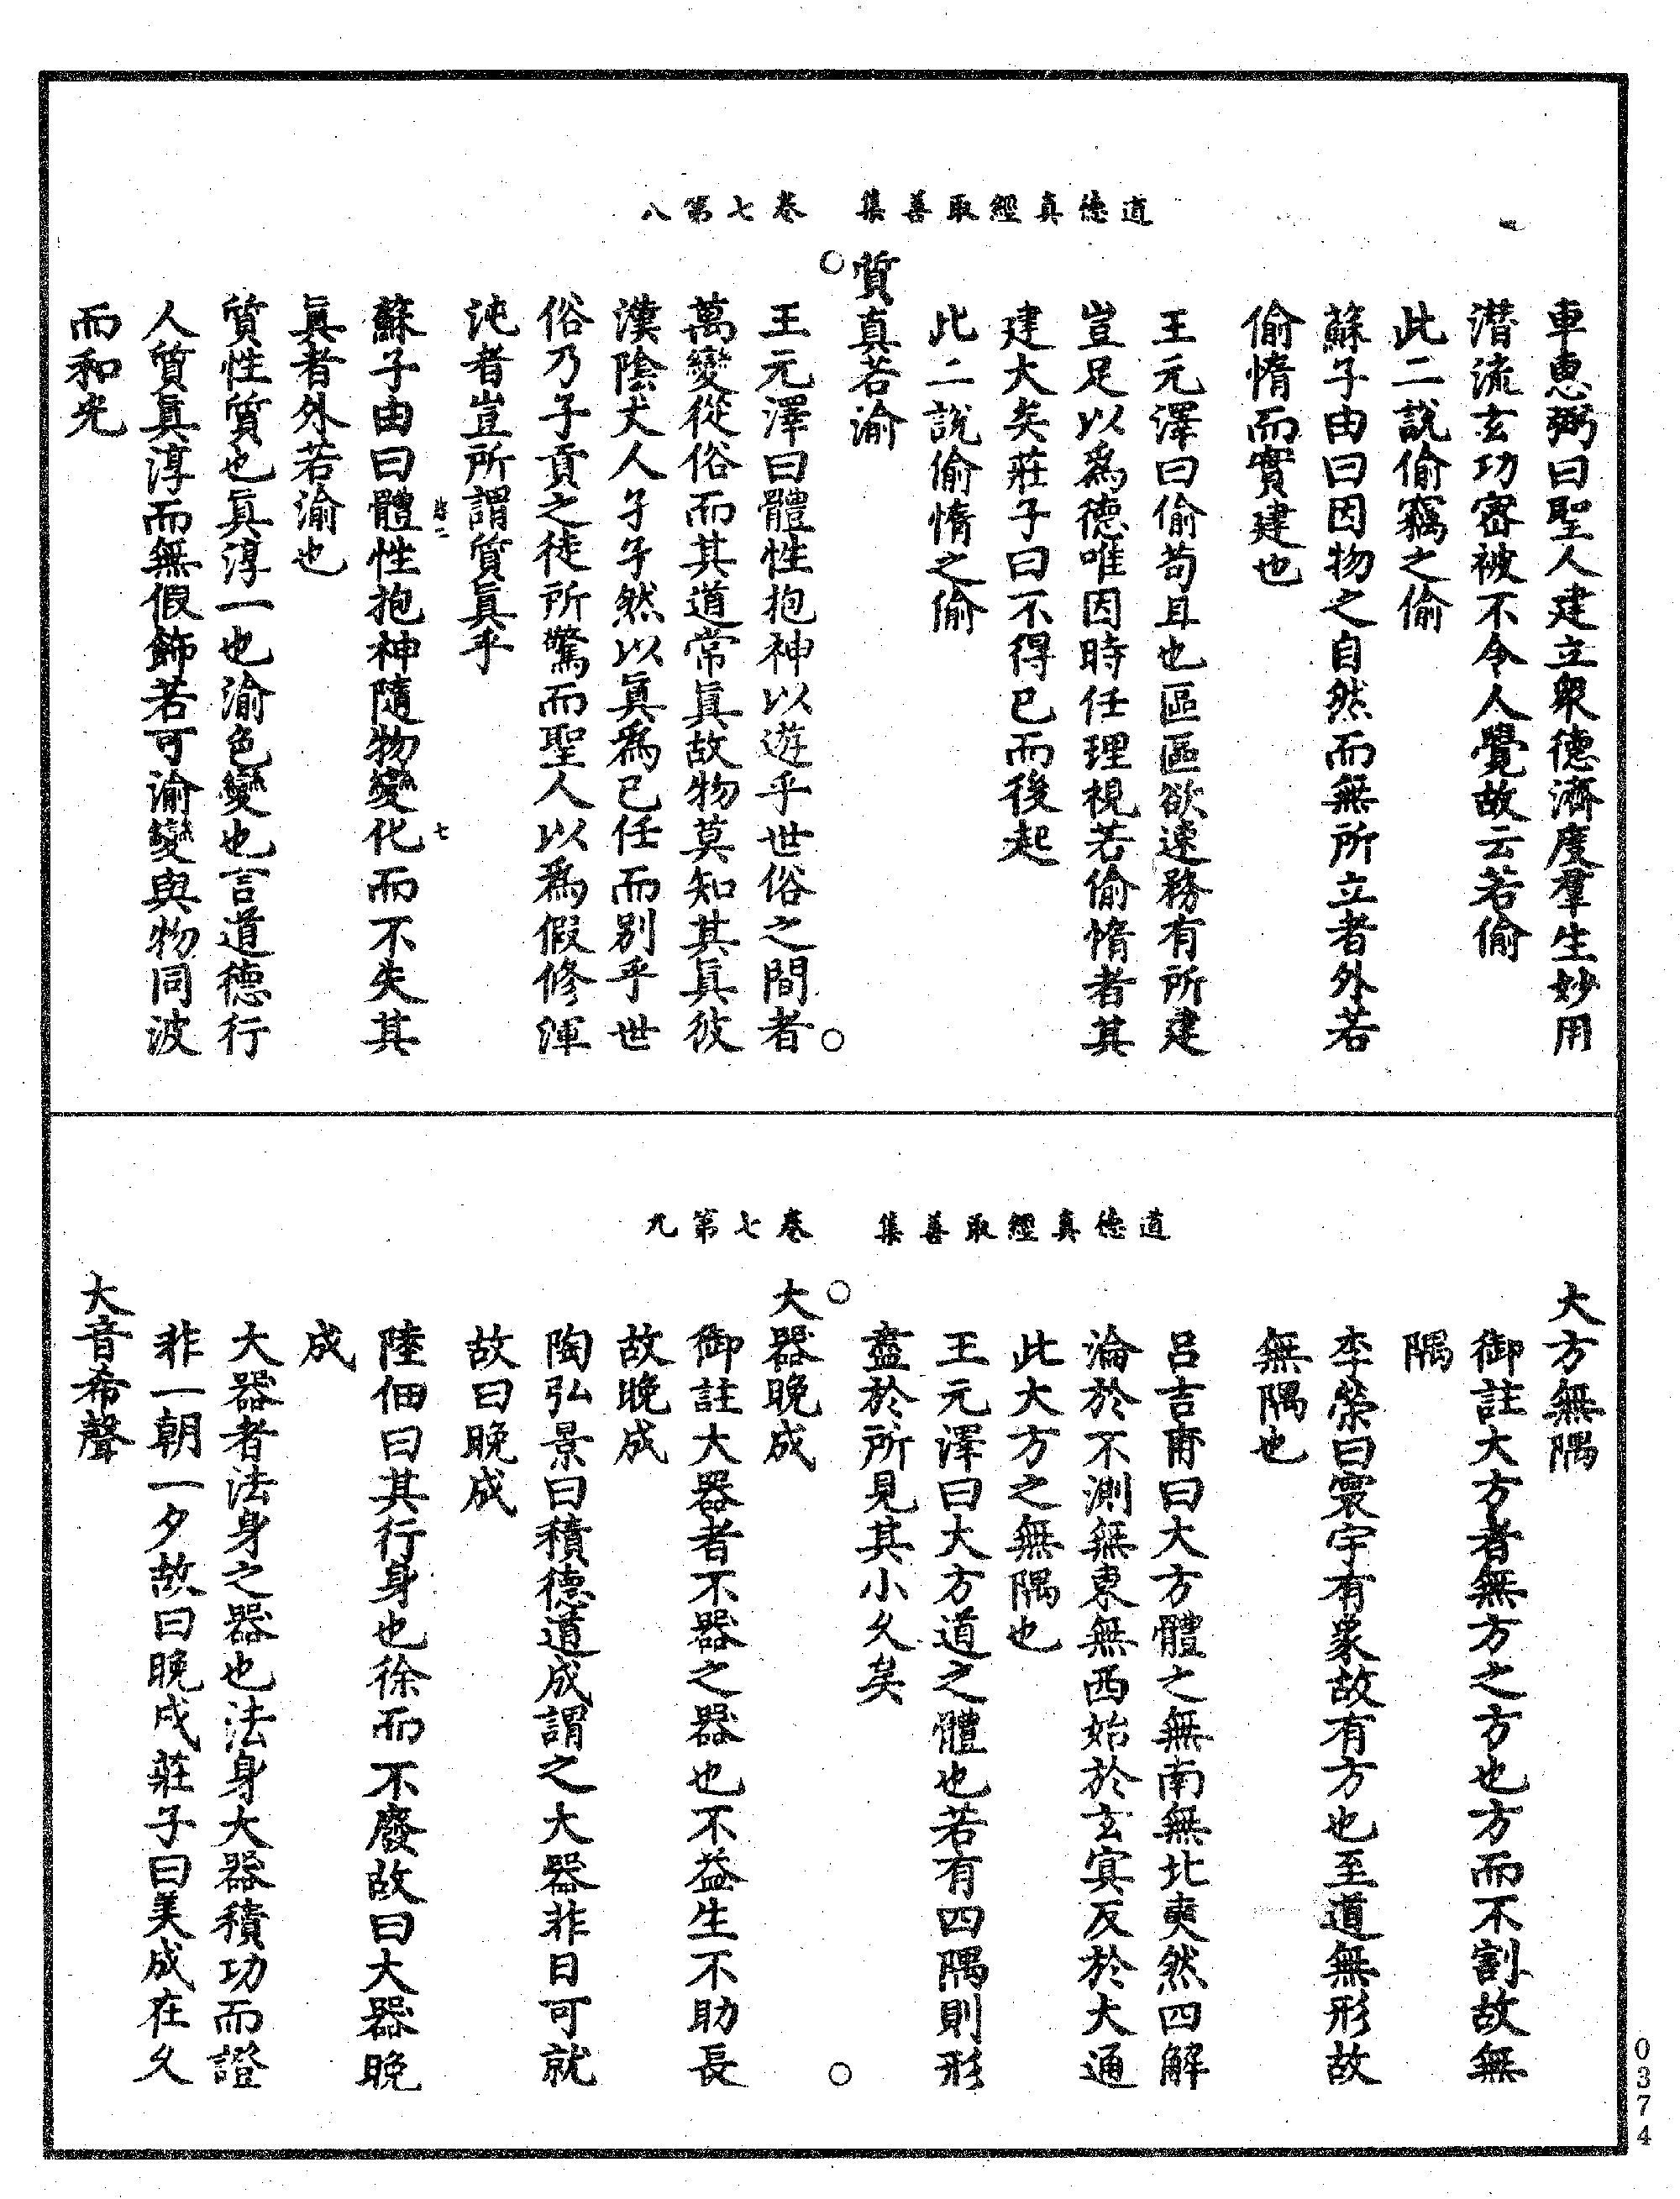 道德真經取善集　卷七第八
車惠弼曰聖人建立衆德濟度羣生妙用
潛流玄功密被不令人覺故云若偷
此二說偷竊之偷
蘇子由曰因物之自然而無所立者外若
偷惰而實建也
王元澤曰偷苟且也區區欲速務有所建
豈足以爲德唯因時任理視若偷惰者其
建大矣莊子曰不得已而後起
此二說偷惰之偷
質真若渝
王元澤曰體性抱神以遊乎世俗之間者
萬變從俗而其道常眞故物莫知其眞彼
漢陰丈人孑孑然以眞爲已任而別乎世
俗乃子貢之徒所驚而聖人以爲假修渾
沌者豈所謂質眞乎
蘇子由曰體性抱神隨物變化而不失其
眞者外若渝也
質性質也眞淳一也渝色變也言道德行
人質眞淳而無假飾若可渝變與物同波
而和光
七
道德真經取善集　卷七第九
大方無隅
御註大方者無方之方也方而不割故無
隅
李榮曰寰宇有象故有方也至道無形故
無隅也
呂吉甫曰大方體之無南無北奭然四解
淪於不測無東無西始於玄冥反於大通
此大方之無隅也
王元澤曰大方道之體也若有四隅則形
盡於所見其小久矣
大器晚成
御註大器者不器之器也不益生不助長
故晚成
陶弘景曰積德道成謂之大器非日可就
故曰晚成
陸佃曰其行身也徐而不廢故曰大器晚
成
大器者法身之器也法身大器積功而證
非一朝一夕故曰晚成莊子曰美成在久
大音希聲
0374